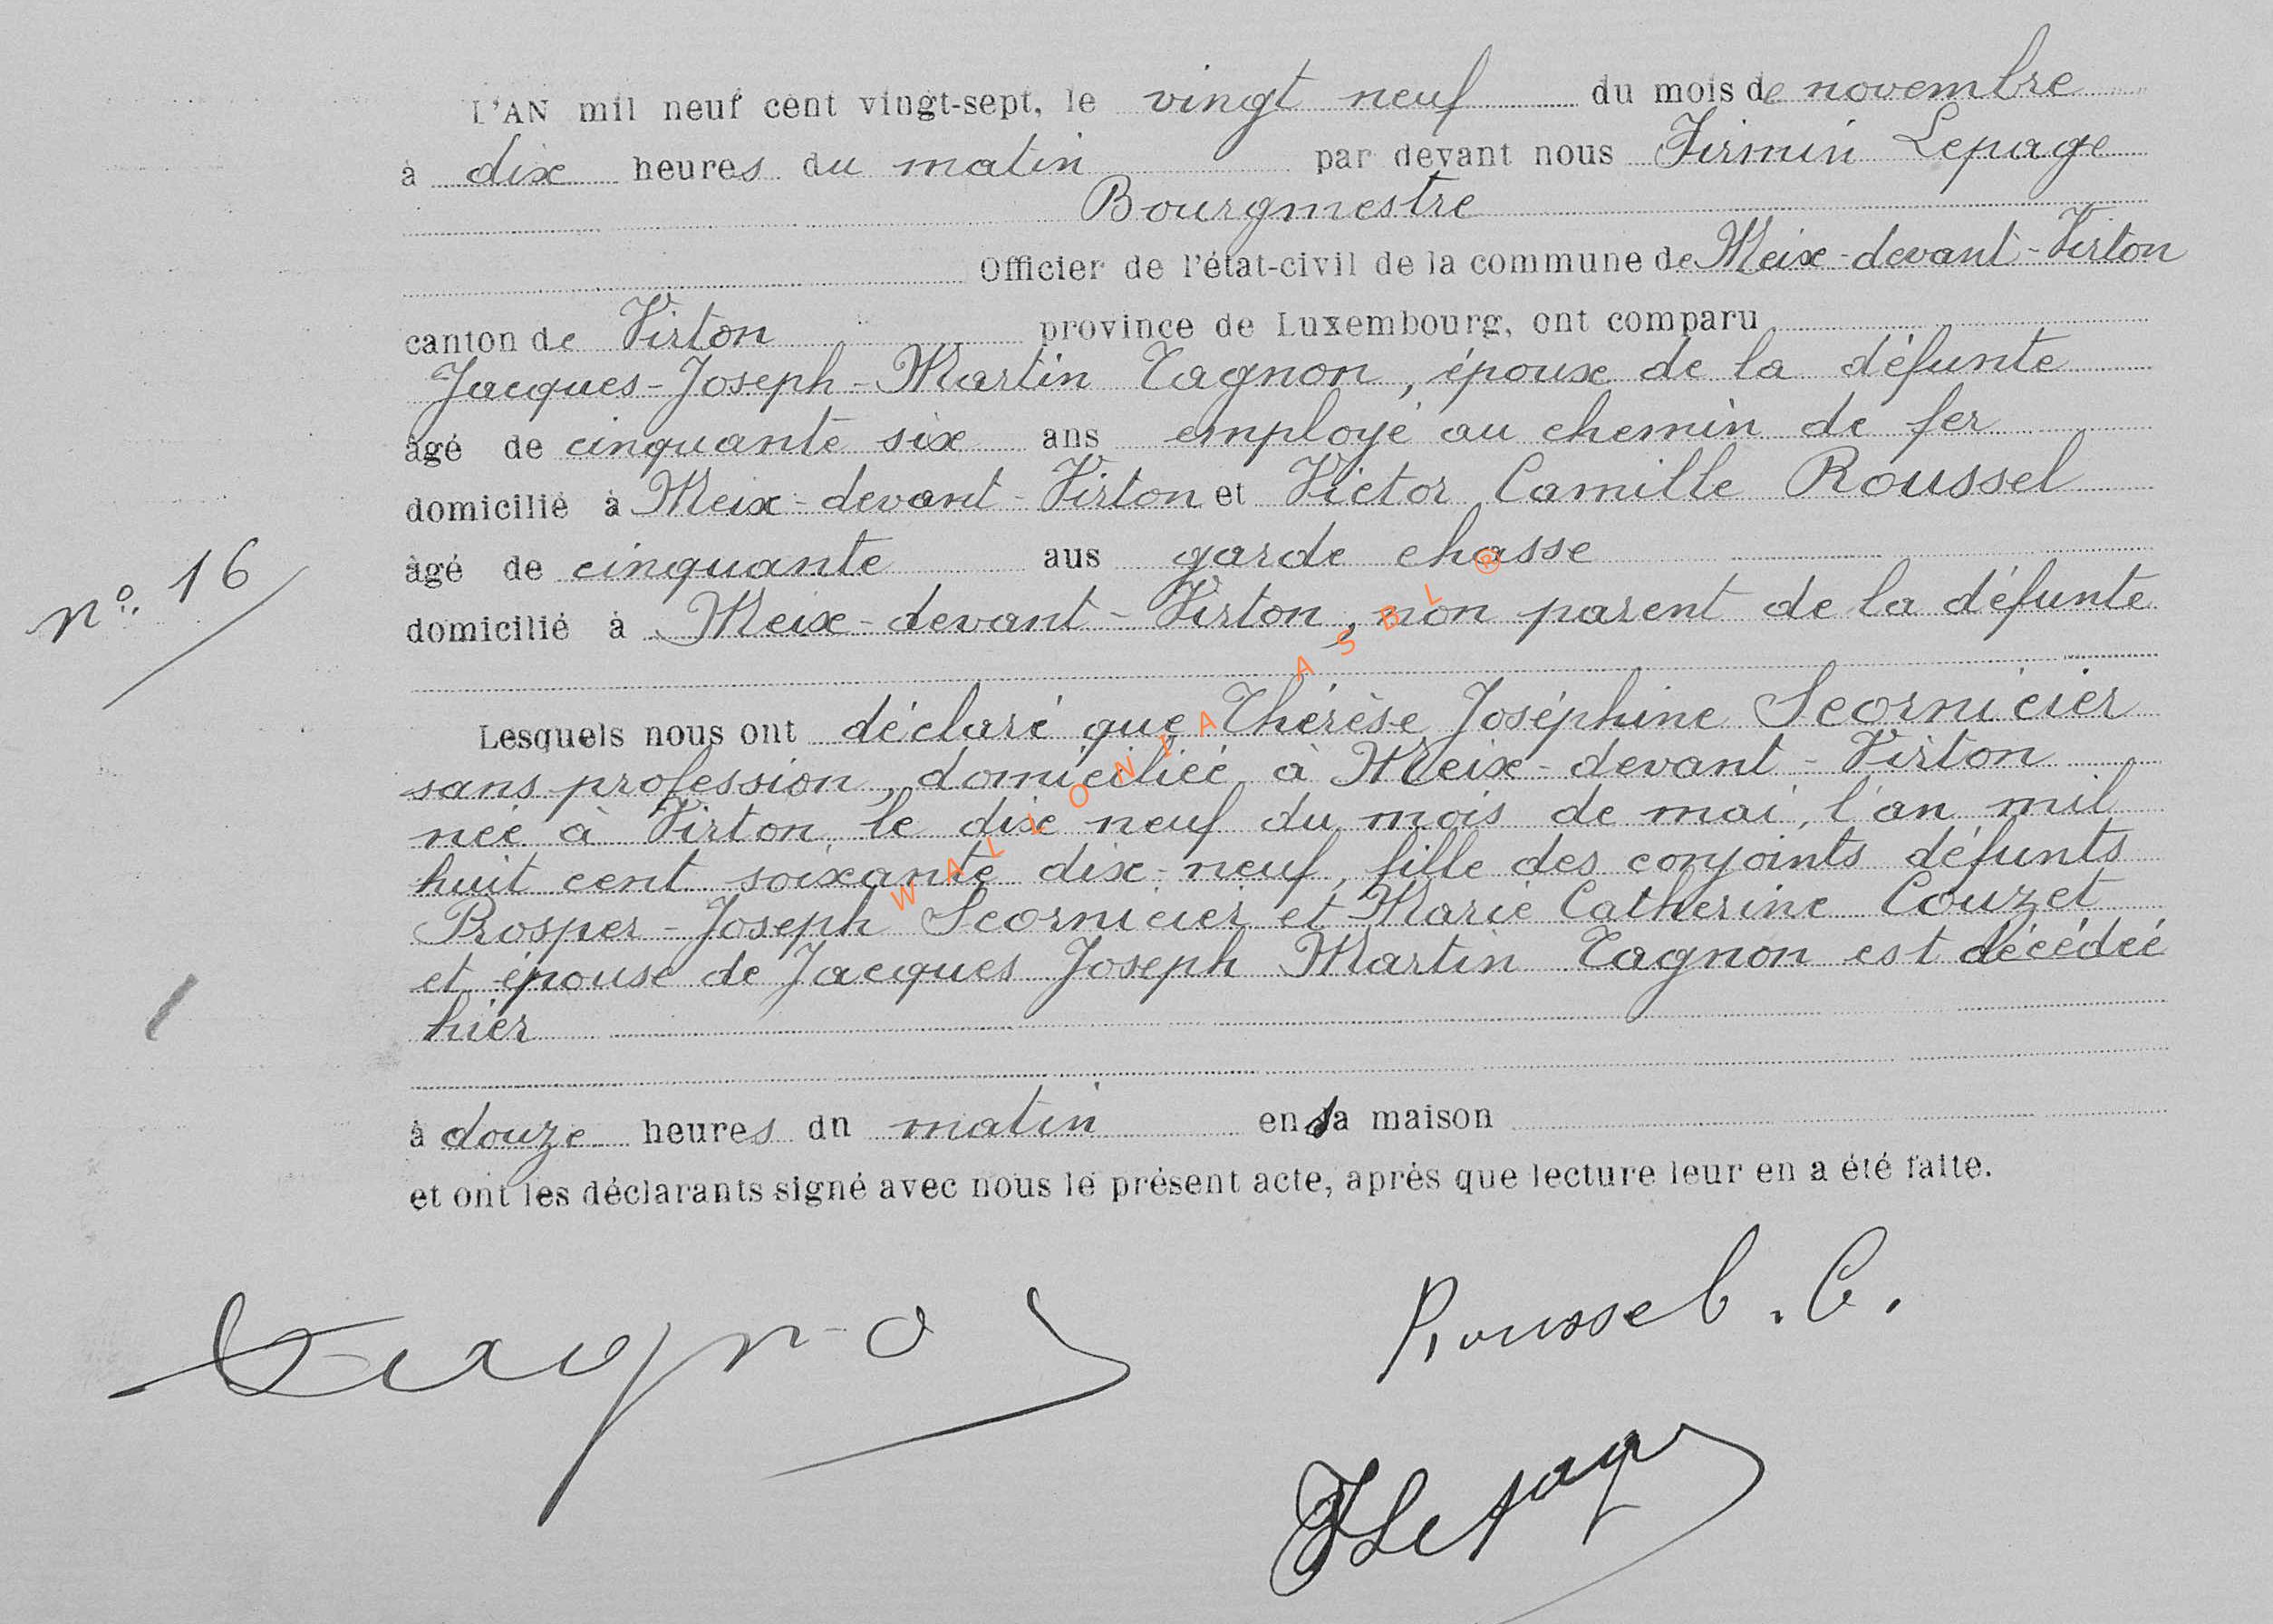 L'AN mil neuf cent vingt-sept, le vingt neuf du mois de novembre
à dix heures du matin par devant nous Firmin Lepage
Bourgmestre
Officier de l'état-civil de la commune de Meix-devant-Virton
canton de Virton province de Luxembourg, ont comparu
Jacques-Joseph-Martin Tagnon, époux de la défunte
âgé de cinquante six ans employé au chemin de fer
domicilié à Meix-devant-Virton et Victor Camille Roussel
nº. 16
âgé de cinquante aus garde chasse
domicilié à Meix-devant-Virton, non parent de la défunte
Lesquels nous ont déclaré que Thérèse Joséphine Scornicier
sans profession, domiciliée à Meix-devant-Virton
née à Virton, le dix neuf du mois de mai, l'an mil
huit cent soixante dix-neuf, fille des conjoints défunts
Prosper-Joseph Scornicier et Marie Catherine Couzet
et épouse de Jacques Joseph Martin Tagnon est décédée
hier
à douze heures dn matin en sa maison
et ont les déclarants signé avec nous le présent acte, après que lecture leur en a été faite.
Tagno
Roussel. C.
FLepage
WALLONIA ASBL ®